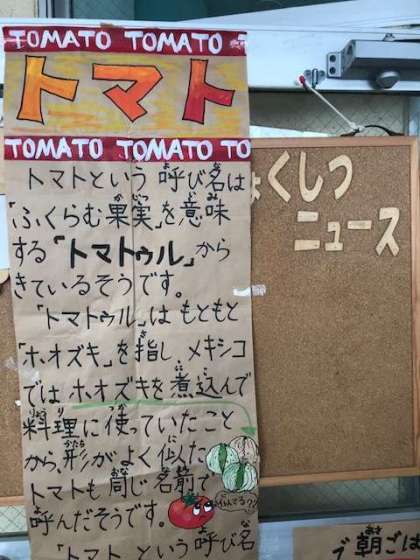 TOMATO TOMATO
トマト
TOMATO TOMATO TO
トマトという呼び名は
「ふくらむ果実」を意味
する「トマトゥル」から
きているそうです。
「トマトゥル」はもともと
「ホオズキ」を指し、メキシコ
ではホオズキを煮込んで
料理に使っていたこと
から、形がよく似た
トマトも同じ名前で
呼んだそうです。
「トマトという呼び名
にてる?
ょくしつ
ニュース
で朝ごは